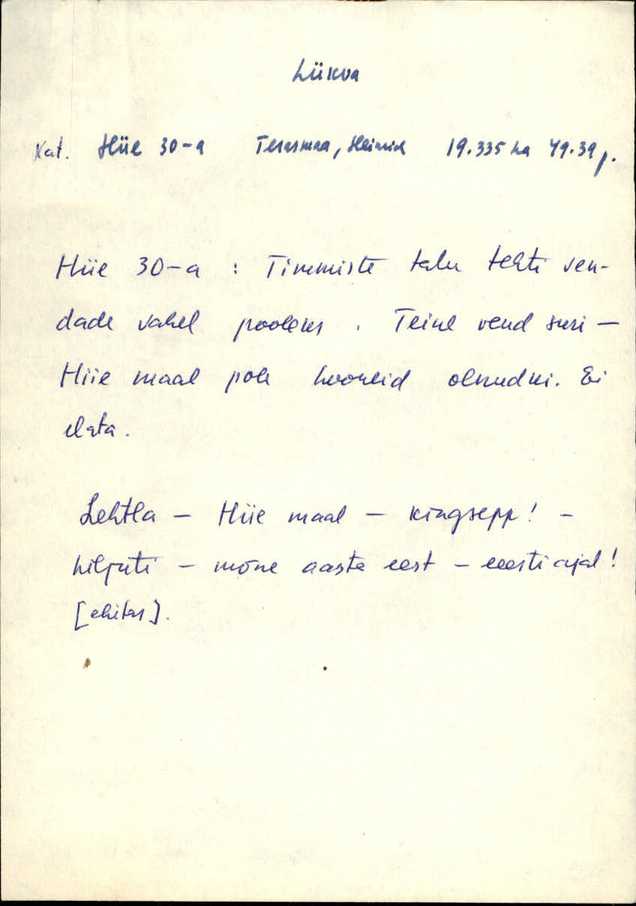 Liikva
Kat. Hiie 30-a Terasmaa, Heinrich 19.335 ha 49.39 p.
Hiie 30-a : Timmiste talu tehti ven-
dade vahel pooleks . Teine vend suri –
Hiie maal pole hooneid olnudki. Ei
elata.
Lehtla – Hiie maal – kingsepp! –
hiljuti – mõne aasta eest – eesti ajal!
[ehitas].